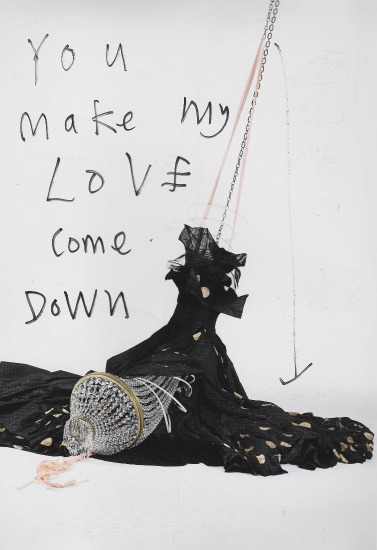 You
make my
LOVE
come
DOWN